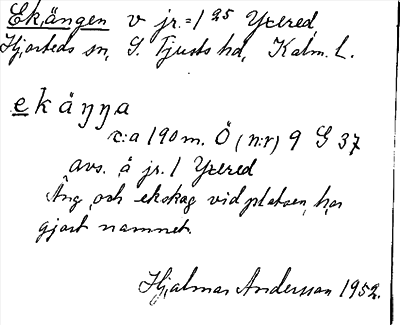 Ekängen v jr.=1 25 Yxered,
Hjorteds sn, S. Tjusts hd, Kalm. L.
ekäŋŋa
c:a 190 m. Ö (n:r) 9 G 37
avs. å jr. 1 Yxered
Äng och ekskog vid platsen, har
gjort namnet.
Hjalmar Andersson 1952.